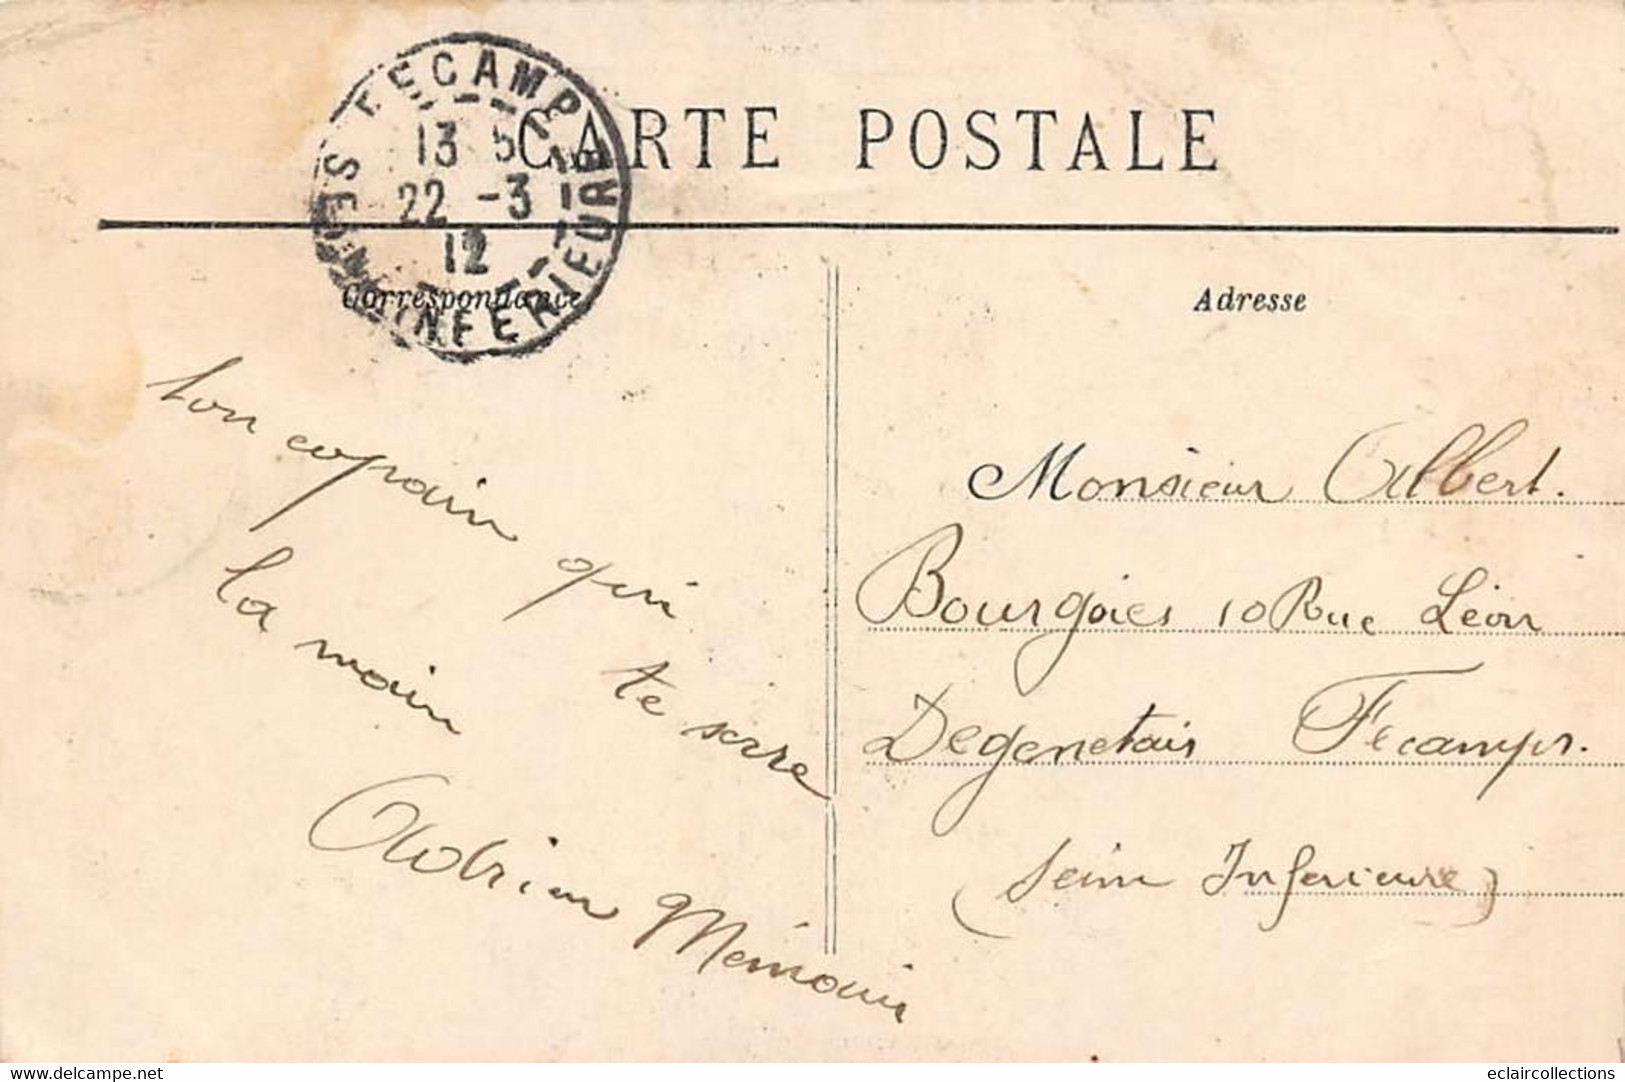 CARTE POSTALE
FECAMP
13 5
22 -3
12
SEINE INFERIEURE
Correspondance
Adresse
ton copain qui te serre
la main
Adrien
Monsieur Albert.
Bourgoies 10 Rue Léon
Degenetais Fecamps.
(Seine Inferieure)
www.delcampe.net
eclaircollections